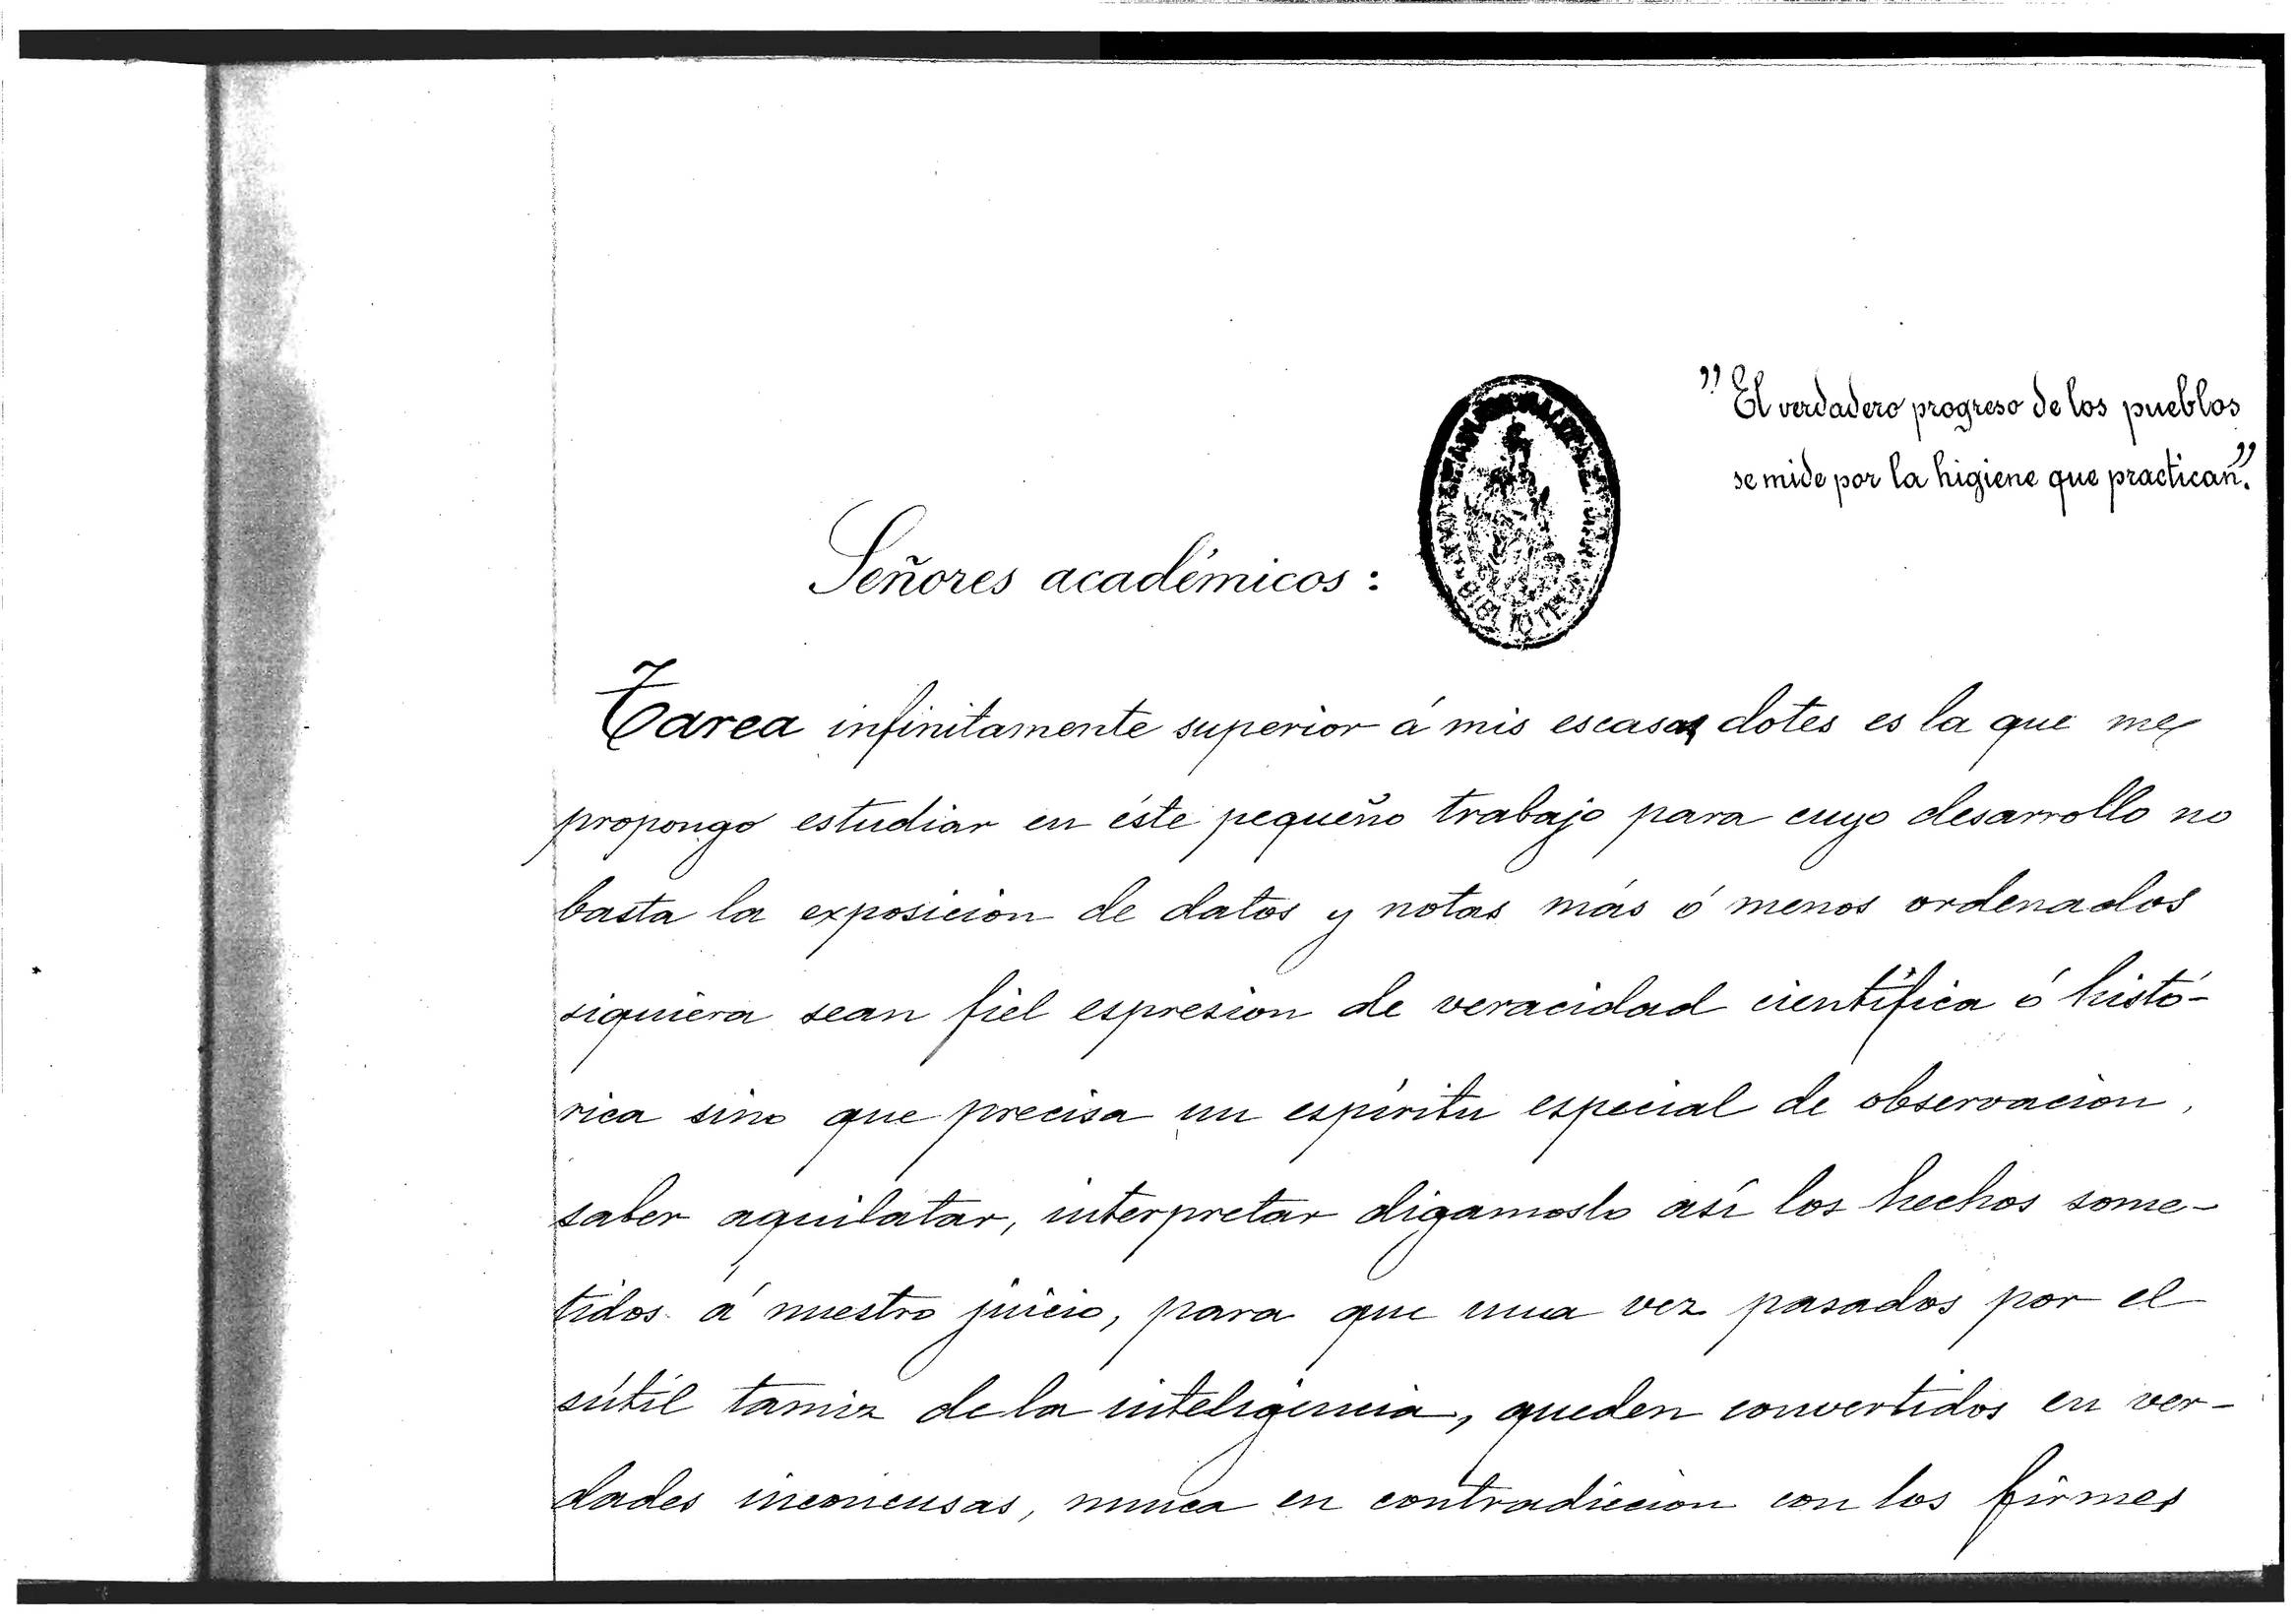 "El verdadero progreso de los pueblos
se mide por la higiene que practican".
BIBLIOTECA
Señores académicos:
Tarea infinitamente superior á mis escasas dotes es la que me
propongo estudiar en éste pequeño trabajo para cuyo desarrollo no
basta la exposicion de datos y notas más ó menos ordenados
siquiera sean fiel espresion de veracidad científica ó histó-
rica sino que precisa un espíritu especial de observacion,
saber aquilatar, interpretar digamoslo así los hechos some-
tidos á nuestro juicio, para que una vez pasados por el
sútil tamiz de la inteligencia, queden convertidos en ver-
dades inconcusas, nunca en contradiccion con los firmes